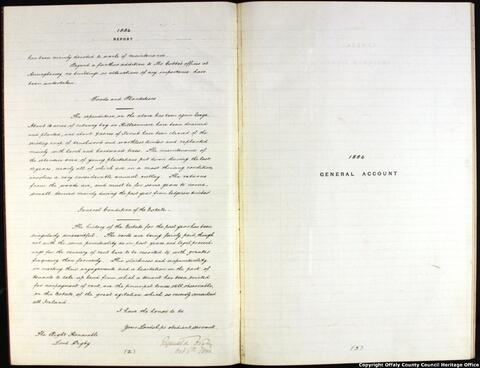 1884
REPORT
has been mainly devoted to works of maintenance.
Beyond a further addition to the Estate offices at
Geashill, no buildings or alterations of any importance have been
undertaken.
Woods and Plantations
The expenditure on the above has been again large.
About 10 acres of cutaway bog in Killeenmore have been drained
and planted, and about 9 acres of Derrech have been cleared of the
existing crop of brushwood and worthless timber and replanted
mainly with larch and hardwood trees. The maintenance of
the extensive area of young plantations put down during the last
years, nearly all of which are in a most thriving condition,
involves a very considerable annual outlay. The returns
from the woods are, and must be for some years to come,
small, derived mainly during the past year from
General Condition of the Estate.
The history of the Estate for the past year has been
singularly uneventful. The rents are being fairly paid, though
not with the same punctuality as in past years and legal proceed-
ings for the recovery of rent have to be resorted to with greater
frequency than formerly. This slackness and unpunctuality
in meeting their engagements and a hesitation on the part of
tenants to take up land from which a tenant has been evicted
for nonpayment of rent, are the principal traces, still observable,
on this Estate, of the great agitation which so recently convulsed
all Ireland.
I have the honor to be
Your Lordship's obedient servant,
The Right Honorable
Lord Digby
Reginald Digby
(2)
1884
GENERAL ACCOUNT
(3)
Copyright Offaly County Council Heritage Office